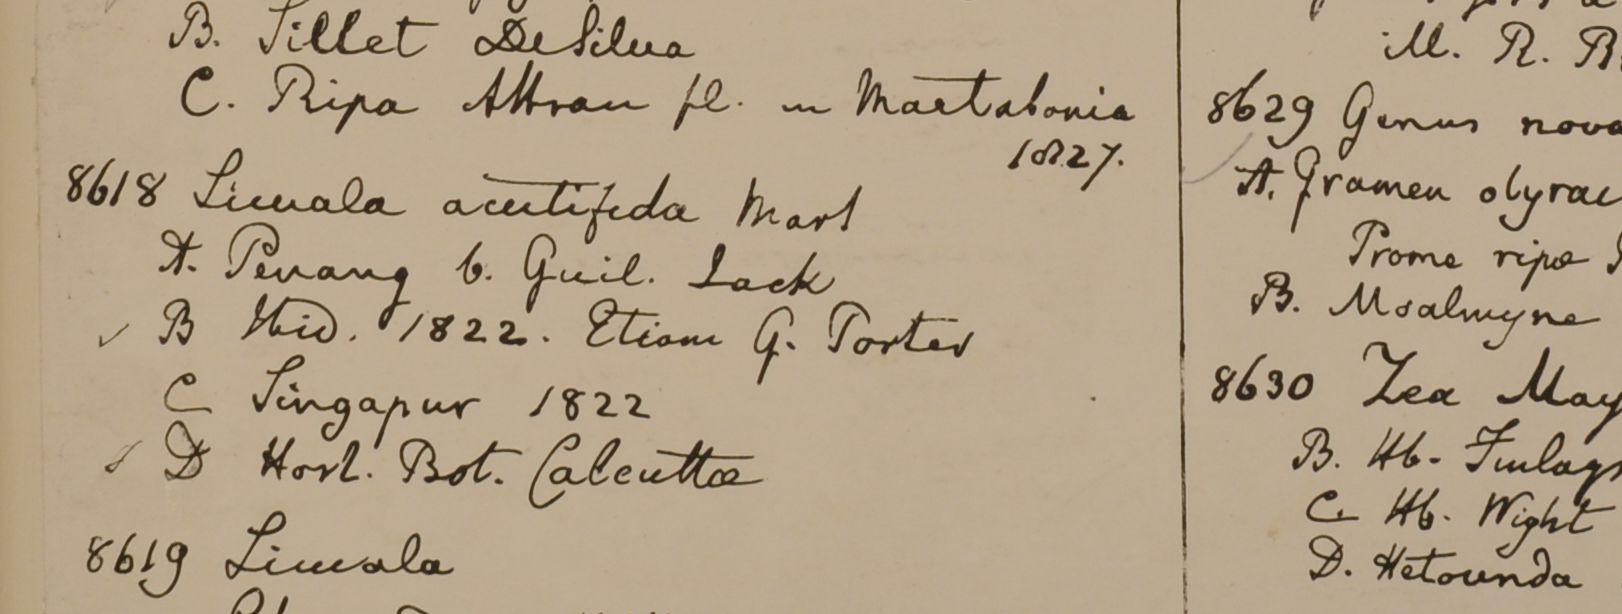 B. Sillet DeSilva
C. Ripa Attran fl. in Martabania
1827.
8618 Licuala acutifida Mart
A. Penang b. Guil. Jack
B Ibid. 1822. Etiam G. Porter
C Singapur 1822
D Hort. Bot. Calcuttæ
8619 Licuala
M. R. B.
8629 Genus nova
A. Gramen olyrac
Prome ripæ
B. Moalmyne
8630 Zea May
B. Hb. Finlays
C. Hb. Wight
D. Hetounda